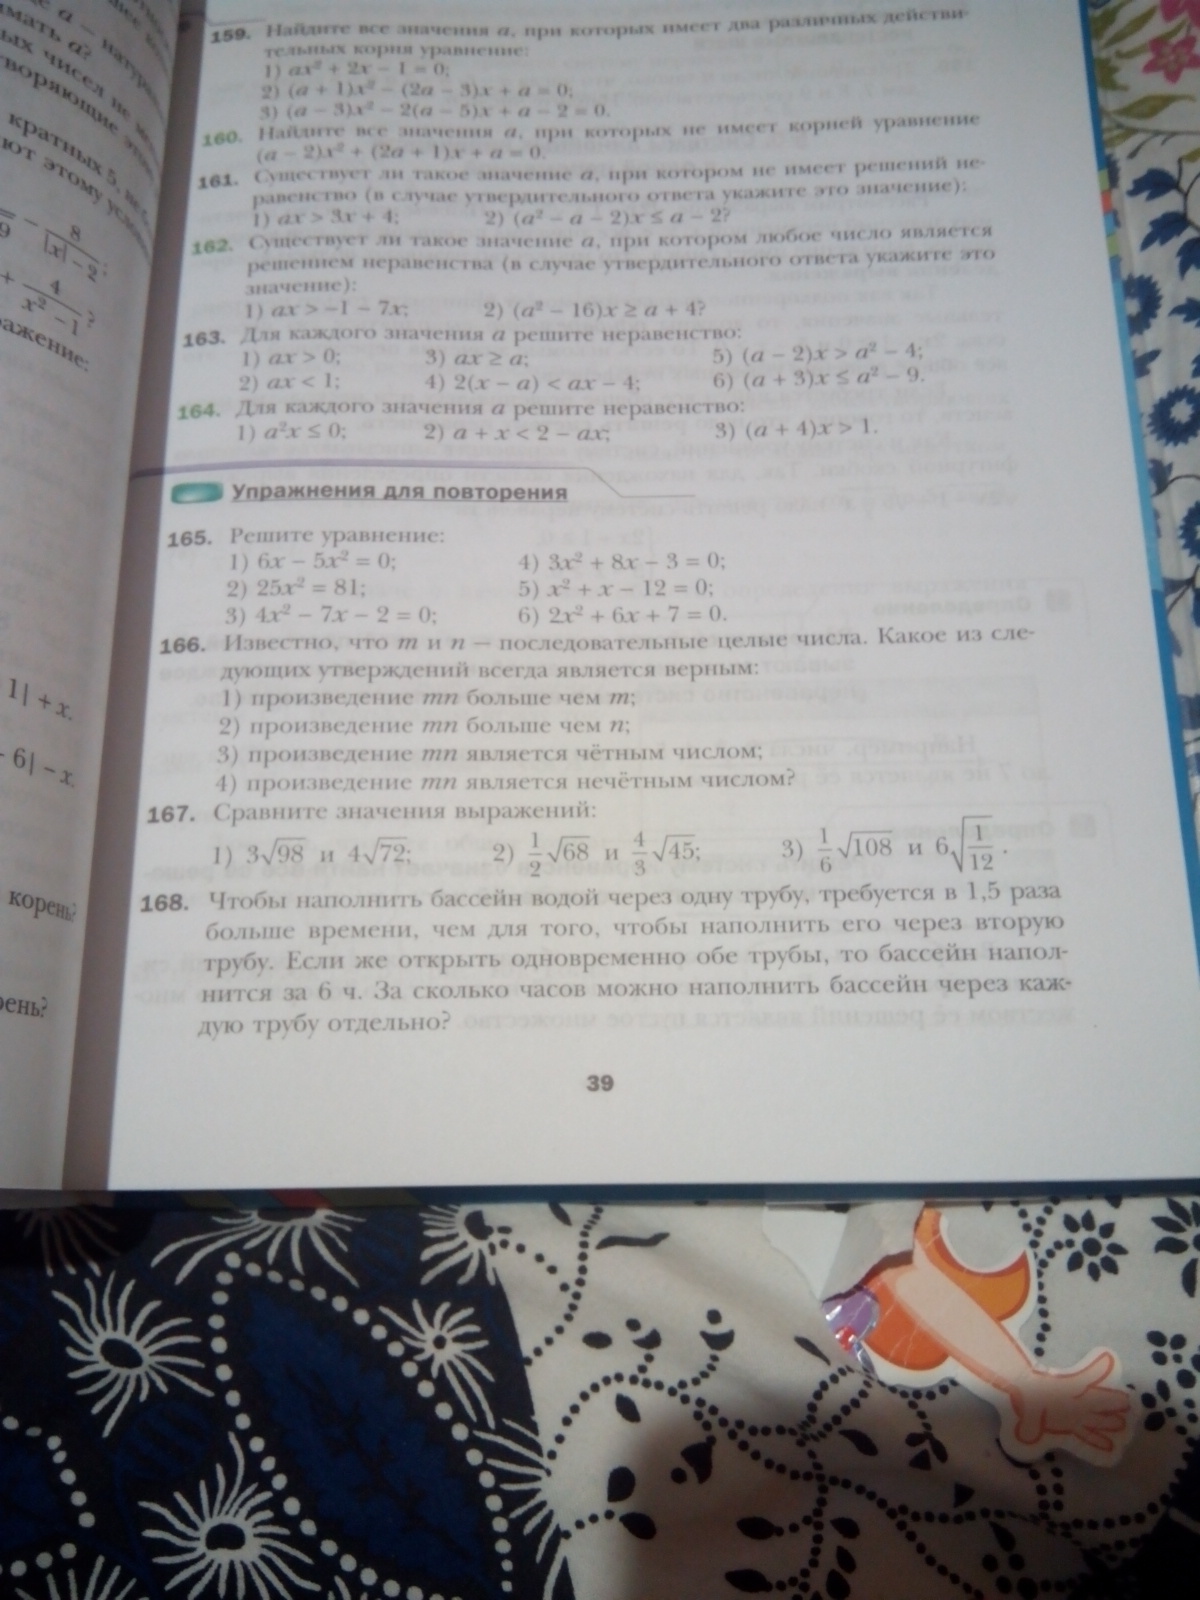 159. Найдите все значения a, при которых имеет два различных действи-
тельных корня уравнение:
1) ax² + 2x − 1 = 0;
2) (a + 1)x² − (2a − 3)x + a = 0;
3) (a − 3)x² − 2(a − 5)x + a − 2 = 0.
160. Найдите все значения a, при которых не имеет корней уравнение
(a − 2)x² + (2a + 1)x + a = 0.
161. Существует ли такое значение a, при котором не имеет решений не-
равенство (в случае утвердительного ответа укажите это значение):
1) ax > 3x + 4; 2) (a² − a − 2)x ≤ a − 2?
162. Существует ли такое значение a, при котором любое число является
решением неравенства (в случае утвердительного ответа укажите это
значение):
1) ax > −1 − 7x; 2) (a² − 16)x ≥ a + 4?
163. Для каждого значения a решите неравенство:
1) ax > 0; 3) ax ≥ a; 5) (a − 2)x > a² − 4;
2) ax < 1; 4) 2(x − a) < ax − 4; 6) (a + 3)x ≤ a² − 9.
164. Для каждого значения a решите неравенство:
1) a²x ≤ 0; 2) a + x < 2 − ax; 3) (a + 4)x > 1.
Упражнения для повторения
165. Решите уравнение:
1) 6x − 5x² = 0; 4) 3x² + 8x − 3 = 0;
2) 25x² = 81; 5) x² + x − 12 = 0;
3) 4x² − 7x − 2 = 0; 6) 2x² + 6x + 7 = 0.
166. Известно, что m и n — последовательные целые числа. Какое из сле-
дующих утверждений всегда является верным:
1) произведение mn больше чем m;
2) произведение mn больше чем n;
3) произведение mn является чётным числом;
4) произведение mn является нечётным числом?
167. Сравните значения выражений:
1) 3√98 и 4√72; 2) 1/2 √68 и 4/3 √45; 3) 1/6 √108 и 6√(1/12).
168. Чтобы наполнить бассейн водой через одну трубу, требуется в 1,5 раза
больше времени, чем для того, чтобы наполнить его через вторую
трубу. Если же открыть одновременно обе трубы, то бассейн напол-
нится за 6 ч. За сколько часов можно наполнить бассейн через каж-
дую трубу отдельно?
39